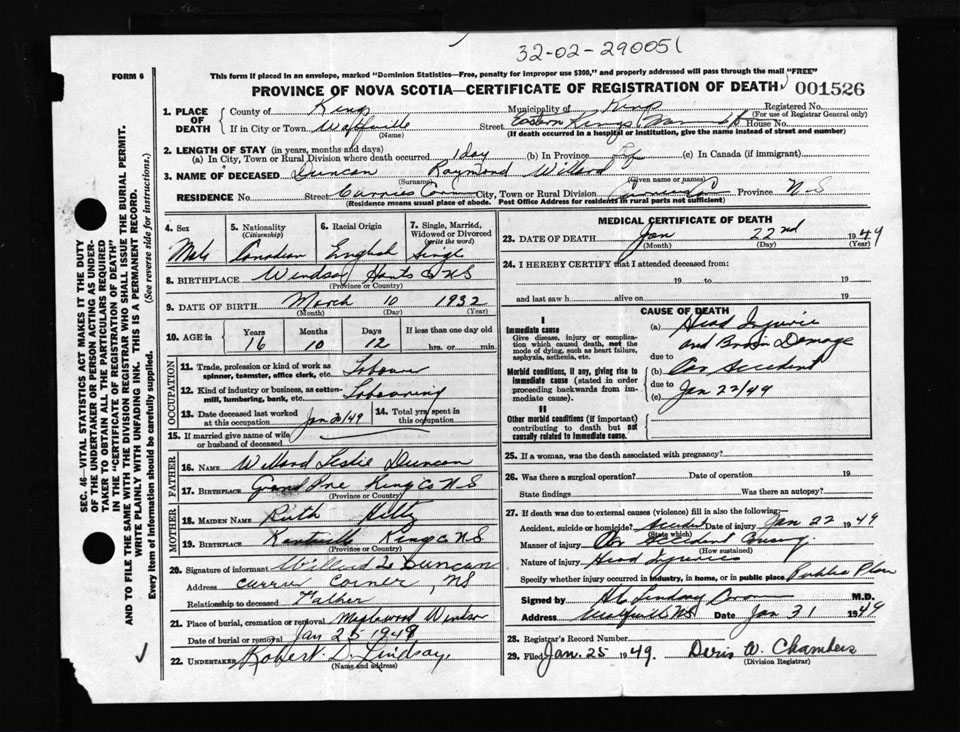 32-02-290051
FORM 6
This form if placed in an envelope, marked "Dominion Statistics—Free, penalty for improper use $300," and properly addressed will pass through the mail "FREE"
PROVINCE OF NOVA SCOTIA—CERTIFICATE OF REGISTRATION OF DEATH 001526
1. PLACE OF DEATH
County of Kings Municipality of Kings Registered No.
(For use of Registrar General only)
If in City or Town Wolfville Street Eastern Kings Mem House No.
(Name) (If death occurred in a hospital or institution, give the name instead of street and number)
2. LENGTH OF STAY (in years, months and days)
(a) In City, Town or Rural Division where death occurred 1 day (b) In Province (c) In Canada (if immigrant)
3. NAME OF DECEASED Duncan Raymond Willard
(Surname) (Given name or names)
RESIDENCE Street Curries Corner City, Town or Rural Division Province N-S
(Residence means usual place of abode. Post Office Address for residents in rural parts not sufficient)
4. Sex 5. Nationality (Citizenship) 6. Racial Origin 7. Single, Married, Widowed or Divorced (write the word)
Male Canadian English Single
8. BIRTHPLACE Windsor Hants Co N S
(Province or Country)
9. DATE OF BIRTH March 10 1932
(Month) (Day) (Year)
10. AGE in Years Months Days If less than one day old
16 10 12 hrs. or min.
OCCUPATION
11. Trade, profession or kind of work as spinner, teamster, office clerk, etc. Labourer
12. Kind of industry or business, as cotton-mill, lumbering, bank, etc. Labouring
13. Date deceased last worked at this occupation Jan 20/49 14. Total yrs. spent in this occupation
15. If married give name of wife or husband of deceased
FATHER
16. NAME Willard Leslie Duncan
17. BIRTHPLACE Grand Pre Kings Co N S
(Province or Country)
MOTHER
18. MAIDEN NAME Ruth Hiltz
19. BIRTHPLACE Kentville Kings Co N S
(Province or Country)
20. Signature of informant Willard L Duncan
Address Currie Corner, NS
Relationship to deceased Father
21. Place of burial, cremation or removal Maplewood Windsor
Date of burial or removal Jan 25 1949
22. UNDERTAKER Robert D. Lindsay
(Name and address)
MEDICAL CERTIFICATE OF DEATH
23. DATE OF DEATH Jan 22nd 1949
(Month) (Day) (Year)
24. I HEREBY CERTIFY that I attended deceased from:
19 to 19
and last saw h alive on 19
CAUSE OF DEATH
I
Immediate cause
Give disease, injury or complication which caused death, not the mode of dying, such as heart failure, asphyxia, asthenia, etc.
(a) Head Injurie
and Brain Damage
due to
Morbid conditions, if any, giving rise to immediate cause (stated in order proceeding backwards from immediate cause).
(b) Car Accident
due to
(c) Jan 22/49
II
Other morbid conditions (if important) contributing to death but not causally related to immediate cause.
25. If a woman, was the death associated with pregnancy?
26. Was there a surgical operation? Date of operation 19
State findings Was there an autopsy?
27. If death was due to external causes (violence) fill in also the following:—
Accident, suicide or homicide? Accident Date of injury Jan 22 1949
(State which)
Manner of injury Car Accident Causing
(How sustained)
Nature of injury Head Injuries
Specify whether injury occurred in industry, in home, or in public place Public Place
Signed by Lindsay M.D.
Address Wolfville NS Date Jan 31 1949
28. Registrar's Record Number
29. Filed Jan. 25 1949. Doris W. Chambers
(Division Registrar)
SEC. 46—VITAL STATISTICS ACT MAKES IT THE DUTY
OF THE UNDERTAKER OR PERSON ACTING AS UNDER-
TAKER TO OBTAIN ALL THE PARTICULARS REQUIRED
IN THE "CERTIFICATE OF REGISTRATION OF DEATH"
AND TO FILE THE SAME WITH THE DIVISION REGISTRAR WHO SHALL ISSUE THE BURIAL PERMIT.
WRITE PLAINLY WITH UNFADING INK. THIS IS A PERMANENT RECORD.
Every item of information should be carefully supplied. (See reverse side for instructions.)